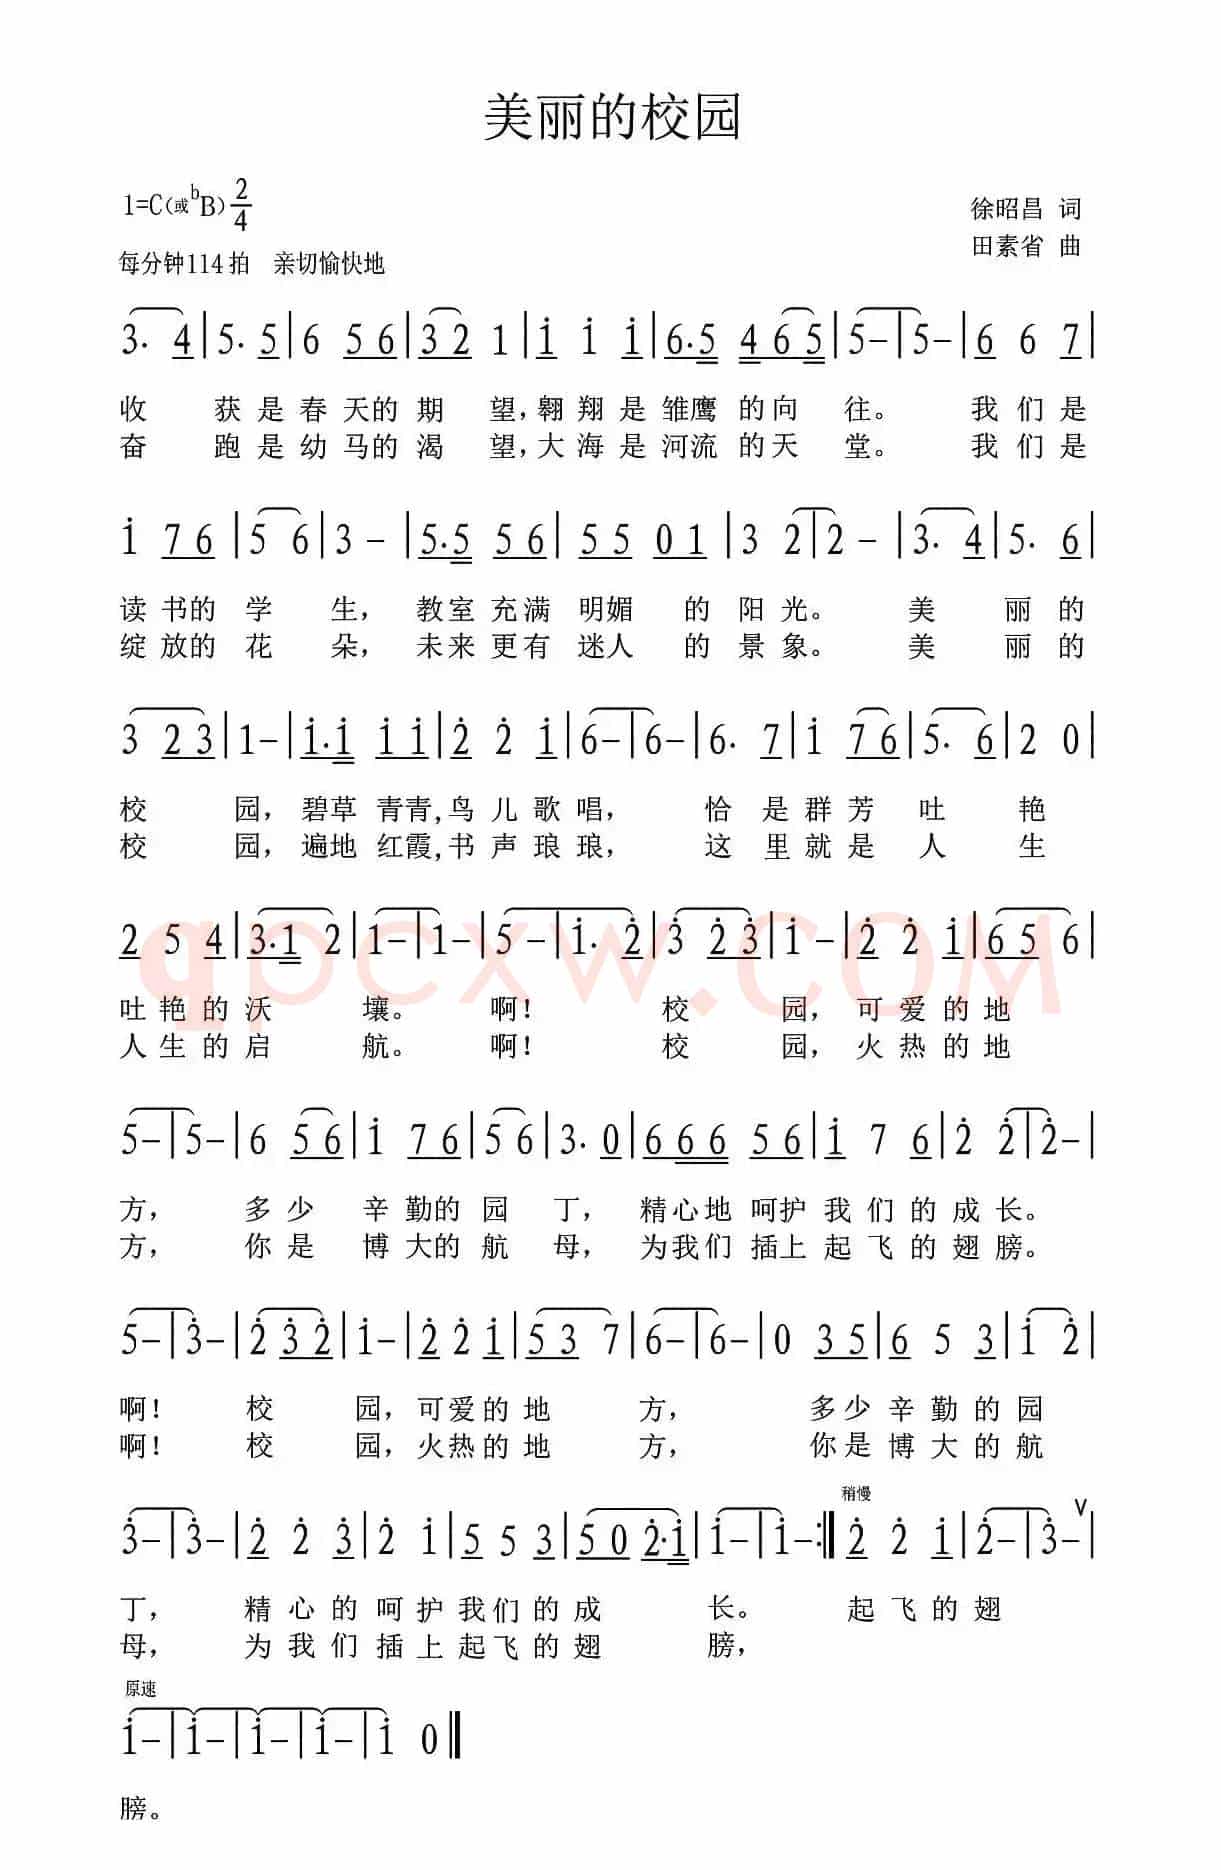 美丽的校园
1=C(或ᵇB) 2/4
徐昭昌 词
每分钟114拍 亲切愉快地
田素省 曲
3. 4|5. 5|6 5 6|3 2 1|i i i|6.5 4 6 5|5-|5-|6 6 7|
收 获 是 春 天的 期 望,翱 翔 是 雏鹰 的向 往。 我 们 是
奋 跑 是 幼 马的 渴 望,大 海 是 河流 的天 堂。 我 们 是
i 7 6|5 6|3 -|5.5 5 6|5 5 0 1|3 2|2 -|3. 4|5. 6|
读 书的 学 生, 教室 充满 明媚 的 阳光。 美 丽的
绽 放的 花 朵, 未来 更有 迷人 的 景象。 美 丽的
3 2 3|1-|i.i i i|2 2 i|6-|6-|6. 7|i 7 6|5. 6|2 0|
校 园, 碧草 青青,鸟 儿 歌 唱, 恰 是 群 芳 吐 艳
校 园, 遍地 红霞,书 声 琅 琅, 这 里 就 是 人 生
2 5 4|3.1 2|1-|1-|5-|i. 2|3 2 3|i-|2 2 i|6 5 6|
qpcxw.COM
吐 艳 的 沃 壤。 啊! 校 园, 可 爱 的 地
人 生 的 启 航。 啊! 校 园, 火 热 的 地
5-|5-|6 5 6|i 7 6|5 6|3. 0|6 6 6 5 6|i 7 6|2 2|2-|
方, 多 少 辛 勤的 园 丁, 精心地 呵护 我 们 的 成 长。
方, 你 是 博 大的 航 母, 为我们 插上 起 飞 的 翅 膀。
5-|3-|2 3 2|i-|2 2 i|5 3 7|6-|6-|0 3 5|6 5 3|i 2|
啊! 校 园, 可 爱 的 地 方, 多 少 辛 勤 的 园
啊! 校 园, 火 热 的 地 方, 你 是 博 大 的 航
稍慢
3-|3-|2 2 3|2 i|5 5 3|5 0 2.i|i-|i-:‖2 2 i|2-|3-∨|
丁, 精 心 的 呵 护 我 们 的 成 长。 起 飞 的 翅
母, 为 我 们 插 上 起 飞 的 翅 膀,
原速
i-|i-|i-|i-|i 0‖
膀。